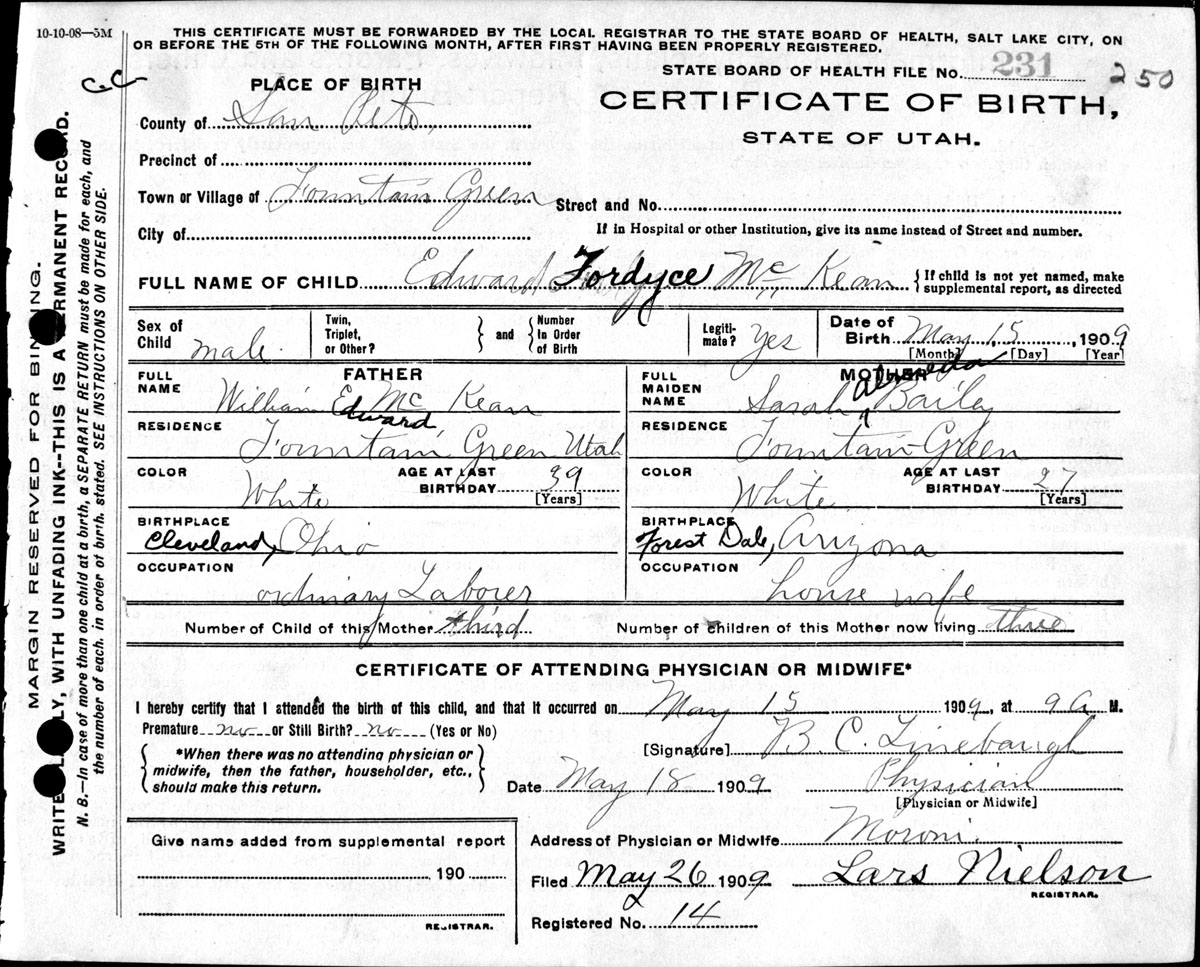 10-10-08—5M
THIS CERTIFICATE MUST BE FORWARDED BY THE LOCAL REGISTRAR TO THE STATE BOARD OF HEALTH, SALT LAKE CITY, ON
OR BEFORE THE 5TH OF THE FOLLOWING MONTH, AFTER FIRST HAVING BEEN PROPERLY REGISTERED.
C.C.
PLACE OF BIRTH
STATE BOARD OF HEALTH FILE No. 231
250
CERTIFICATE OF BIRTH,
STATE OF UTAH.
County of San Pete,
Precinct of
Town or Village of Fountain Green
Street and No.
City of
If in Hospital or other Institution, give its name instead of Street and number.
FULL NAME OF CHILD Edward Fordyce McKean
{ If child is not yet named, make
supplemental report, as directed
Sex of Child male
Twin, Triplet, or Other?
and
Number In Order of Birth
Legiti-mate? Yes
Date of Birth May 15, 1909
[Month] [Day] [Year]
FATHER
FULL NAME William Ed Mc Kean
Edward
RESIDENCE Fountain Green Utah
COLOR White
AGE AT LAST BIRTHDAY 39
[Years]
BIRTHPLACE Cleveland, Ohio
OCCUPATION ordinary Laborer
MOTHER
FULL MAIDEN NAME Sarah Bailey
RESIDENCE Fountain Green
COLOR White
AGE AT LAST BIRTHDAY 27
[Years]
BIRTHPLACE Forest Dale, Arizona
OCCUPATION house wife
Number of Child of this Mother third
Number of children of this Mother now living three
CERTIFICATE OF ATTENDING PHYSICIAN OR MIDWIFE*
I hereby certify that I attended the birth of this child, and that it occurred on May 15 1909, at 9 A M.
Premature no or Still Birth? no (Yes or No)
*When there was no attending physician or
midwife, then the father, householder, etc.,
should make this return.
[Signature] B. C. Linebaugh
Date May 18 1909
Physician
[Physician or Midwife]
Give name added from supplemental report
190
REGISTRAR.
Address of Physician or Midwife Moroni.
Filed May 26 1909
Lars Nielson
REGISTRAR.
Registered No. 14
MARGIN RESERVED FOR BINDING.
WRITE PLAINLY, WITH UNFADING INK--THIS IS A PERMANENT RECORD.
N. B.—In case of more than one child at a birth, a SEPARATE RETURN must be made for each, and
the number of each, in order of birth, stated. SEE INSTRUCTIONS ON OTHER SIDE.